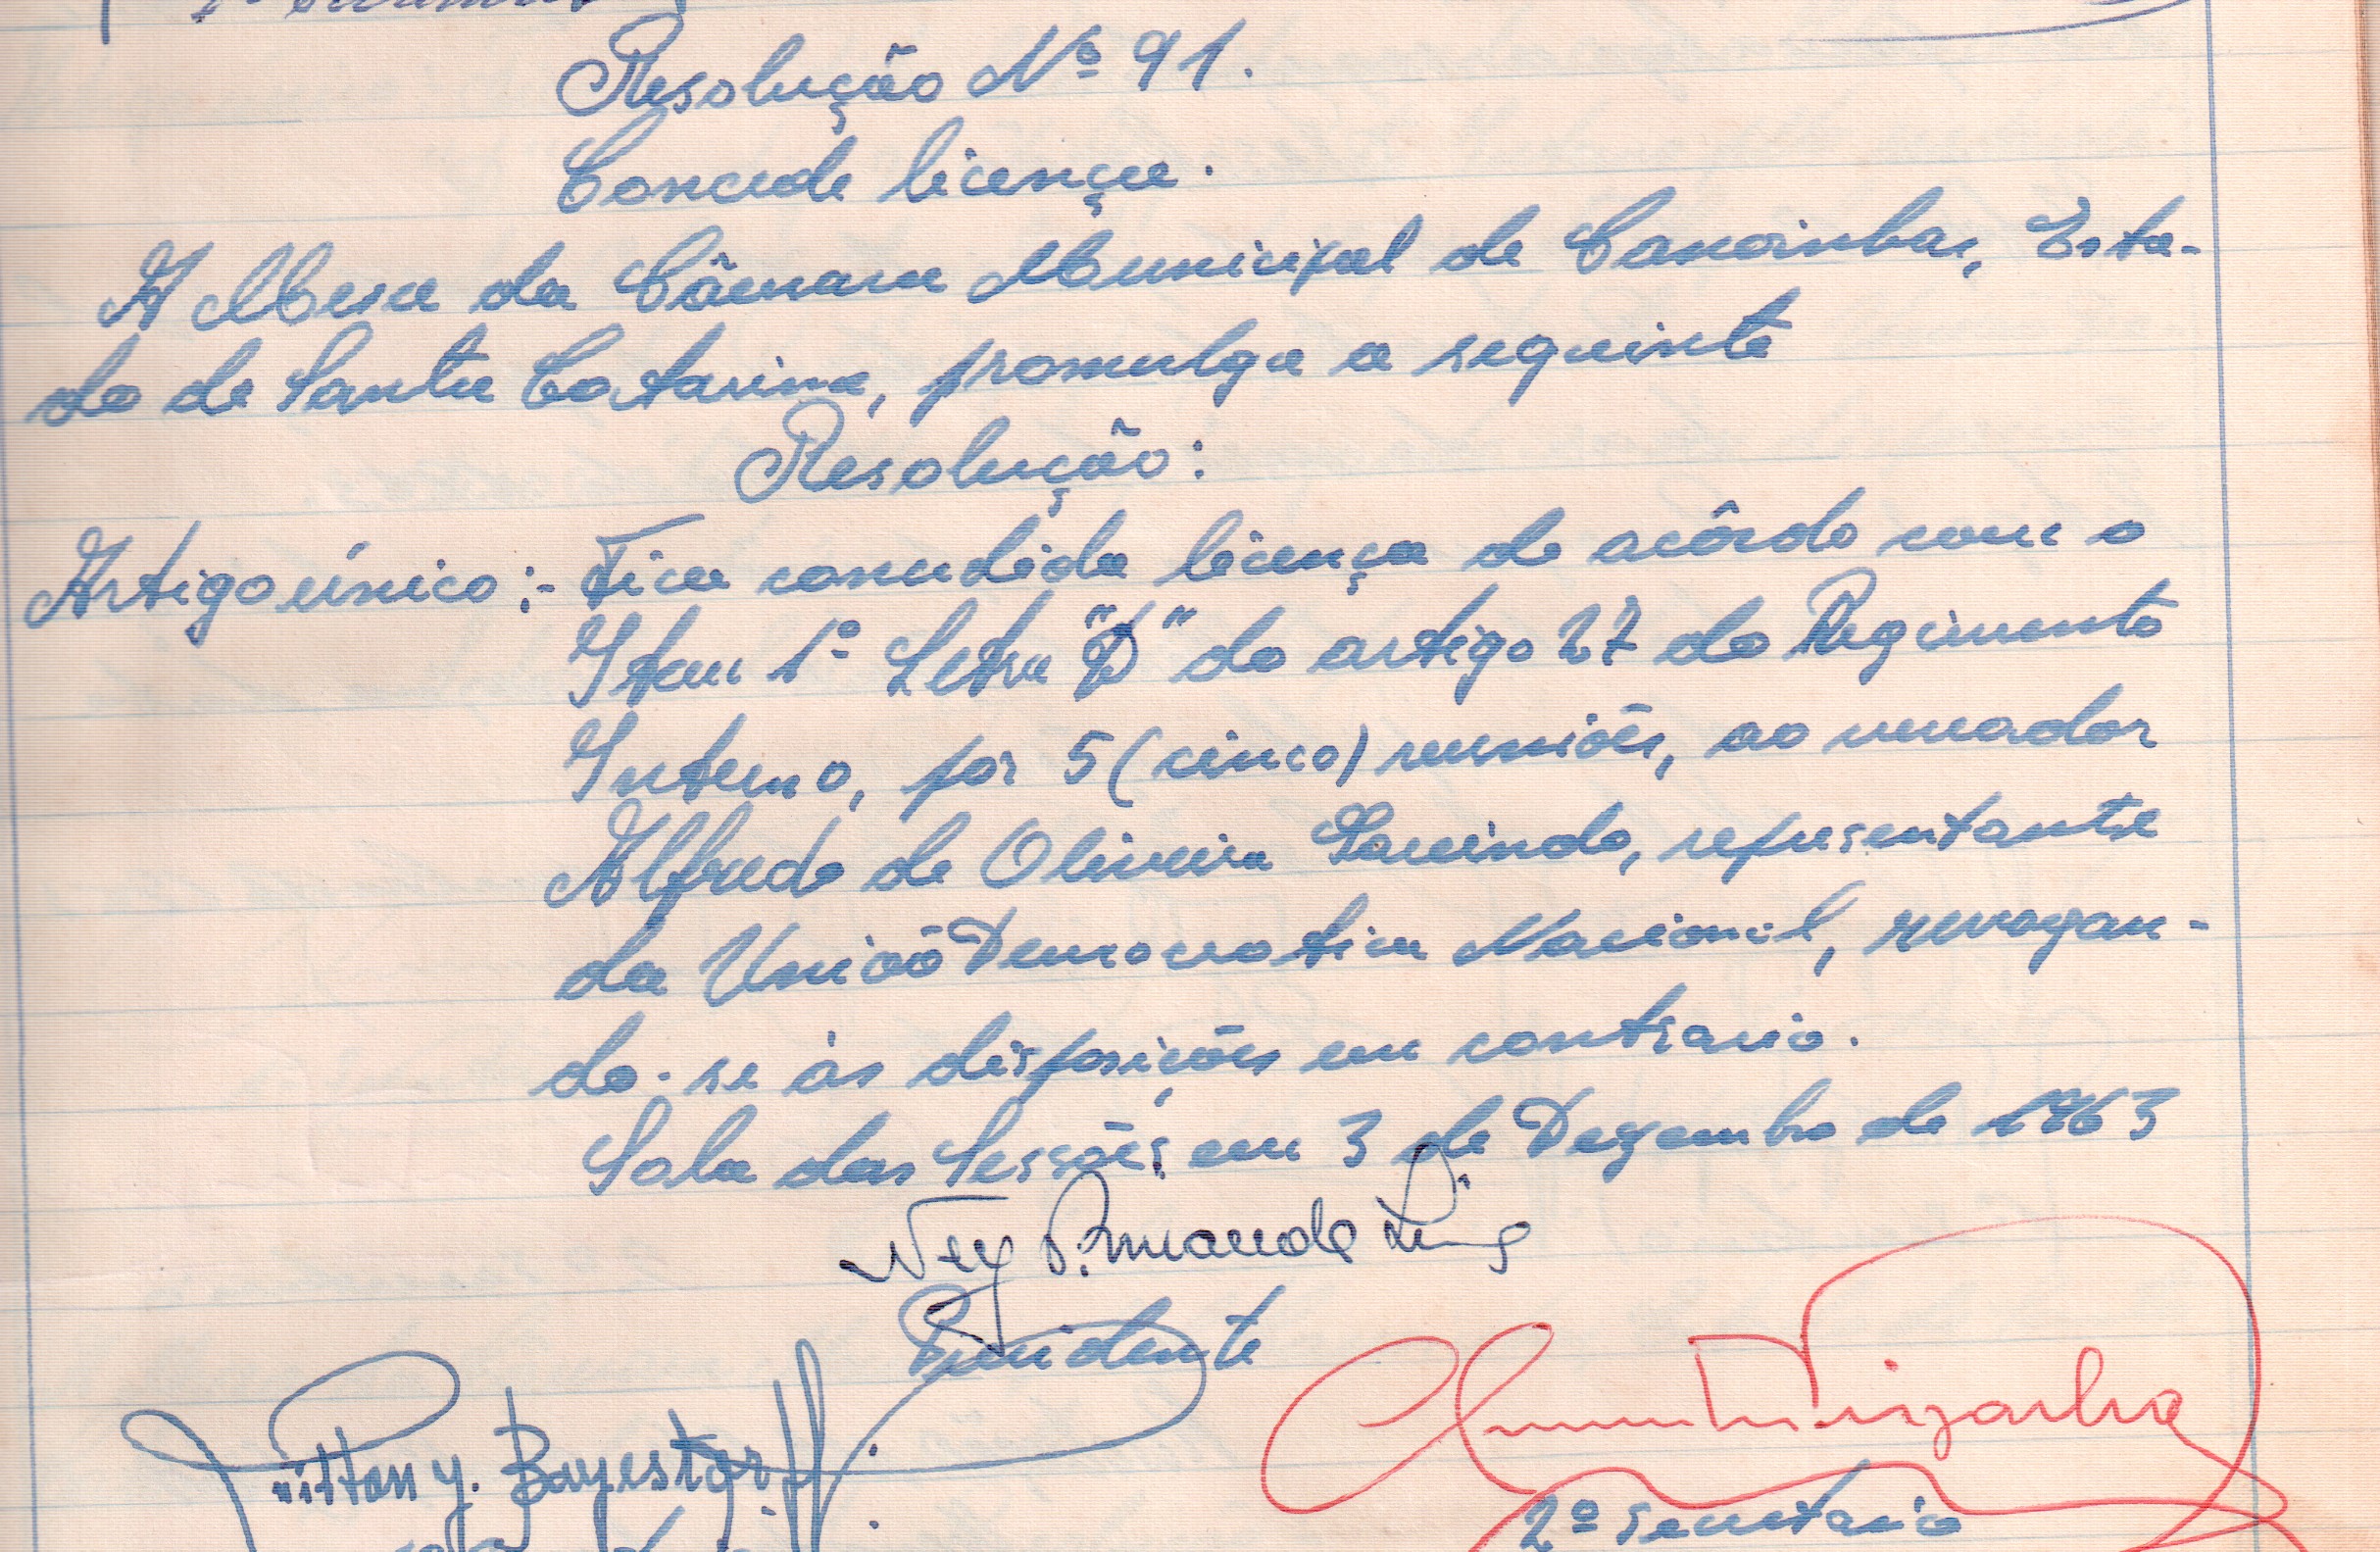 Resolução Nº 91.
Concede licença.
A Mesa da Câmara Municipal de Canoinhas, Esta-
do de Santa Catarina, promulga a seguinte
Resolução:
Artigo único:- Fica concedida licença de acôrdo com o
Item 1º Letra "D" do artigo 27 do Regimento
Interno, por 5 (cinco) reuniões, ao vereador
Alfredo de Oliveira Garcindo, representante
da União Democratica Nacional, revogan-
do-se às disposições em contrario.
Sala das Sessões em 3 de Dezembro de 1963
Ney
Presidente
2º Secretario